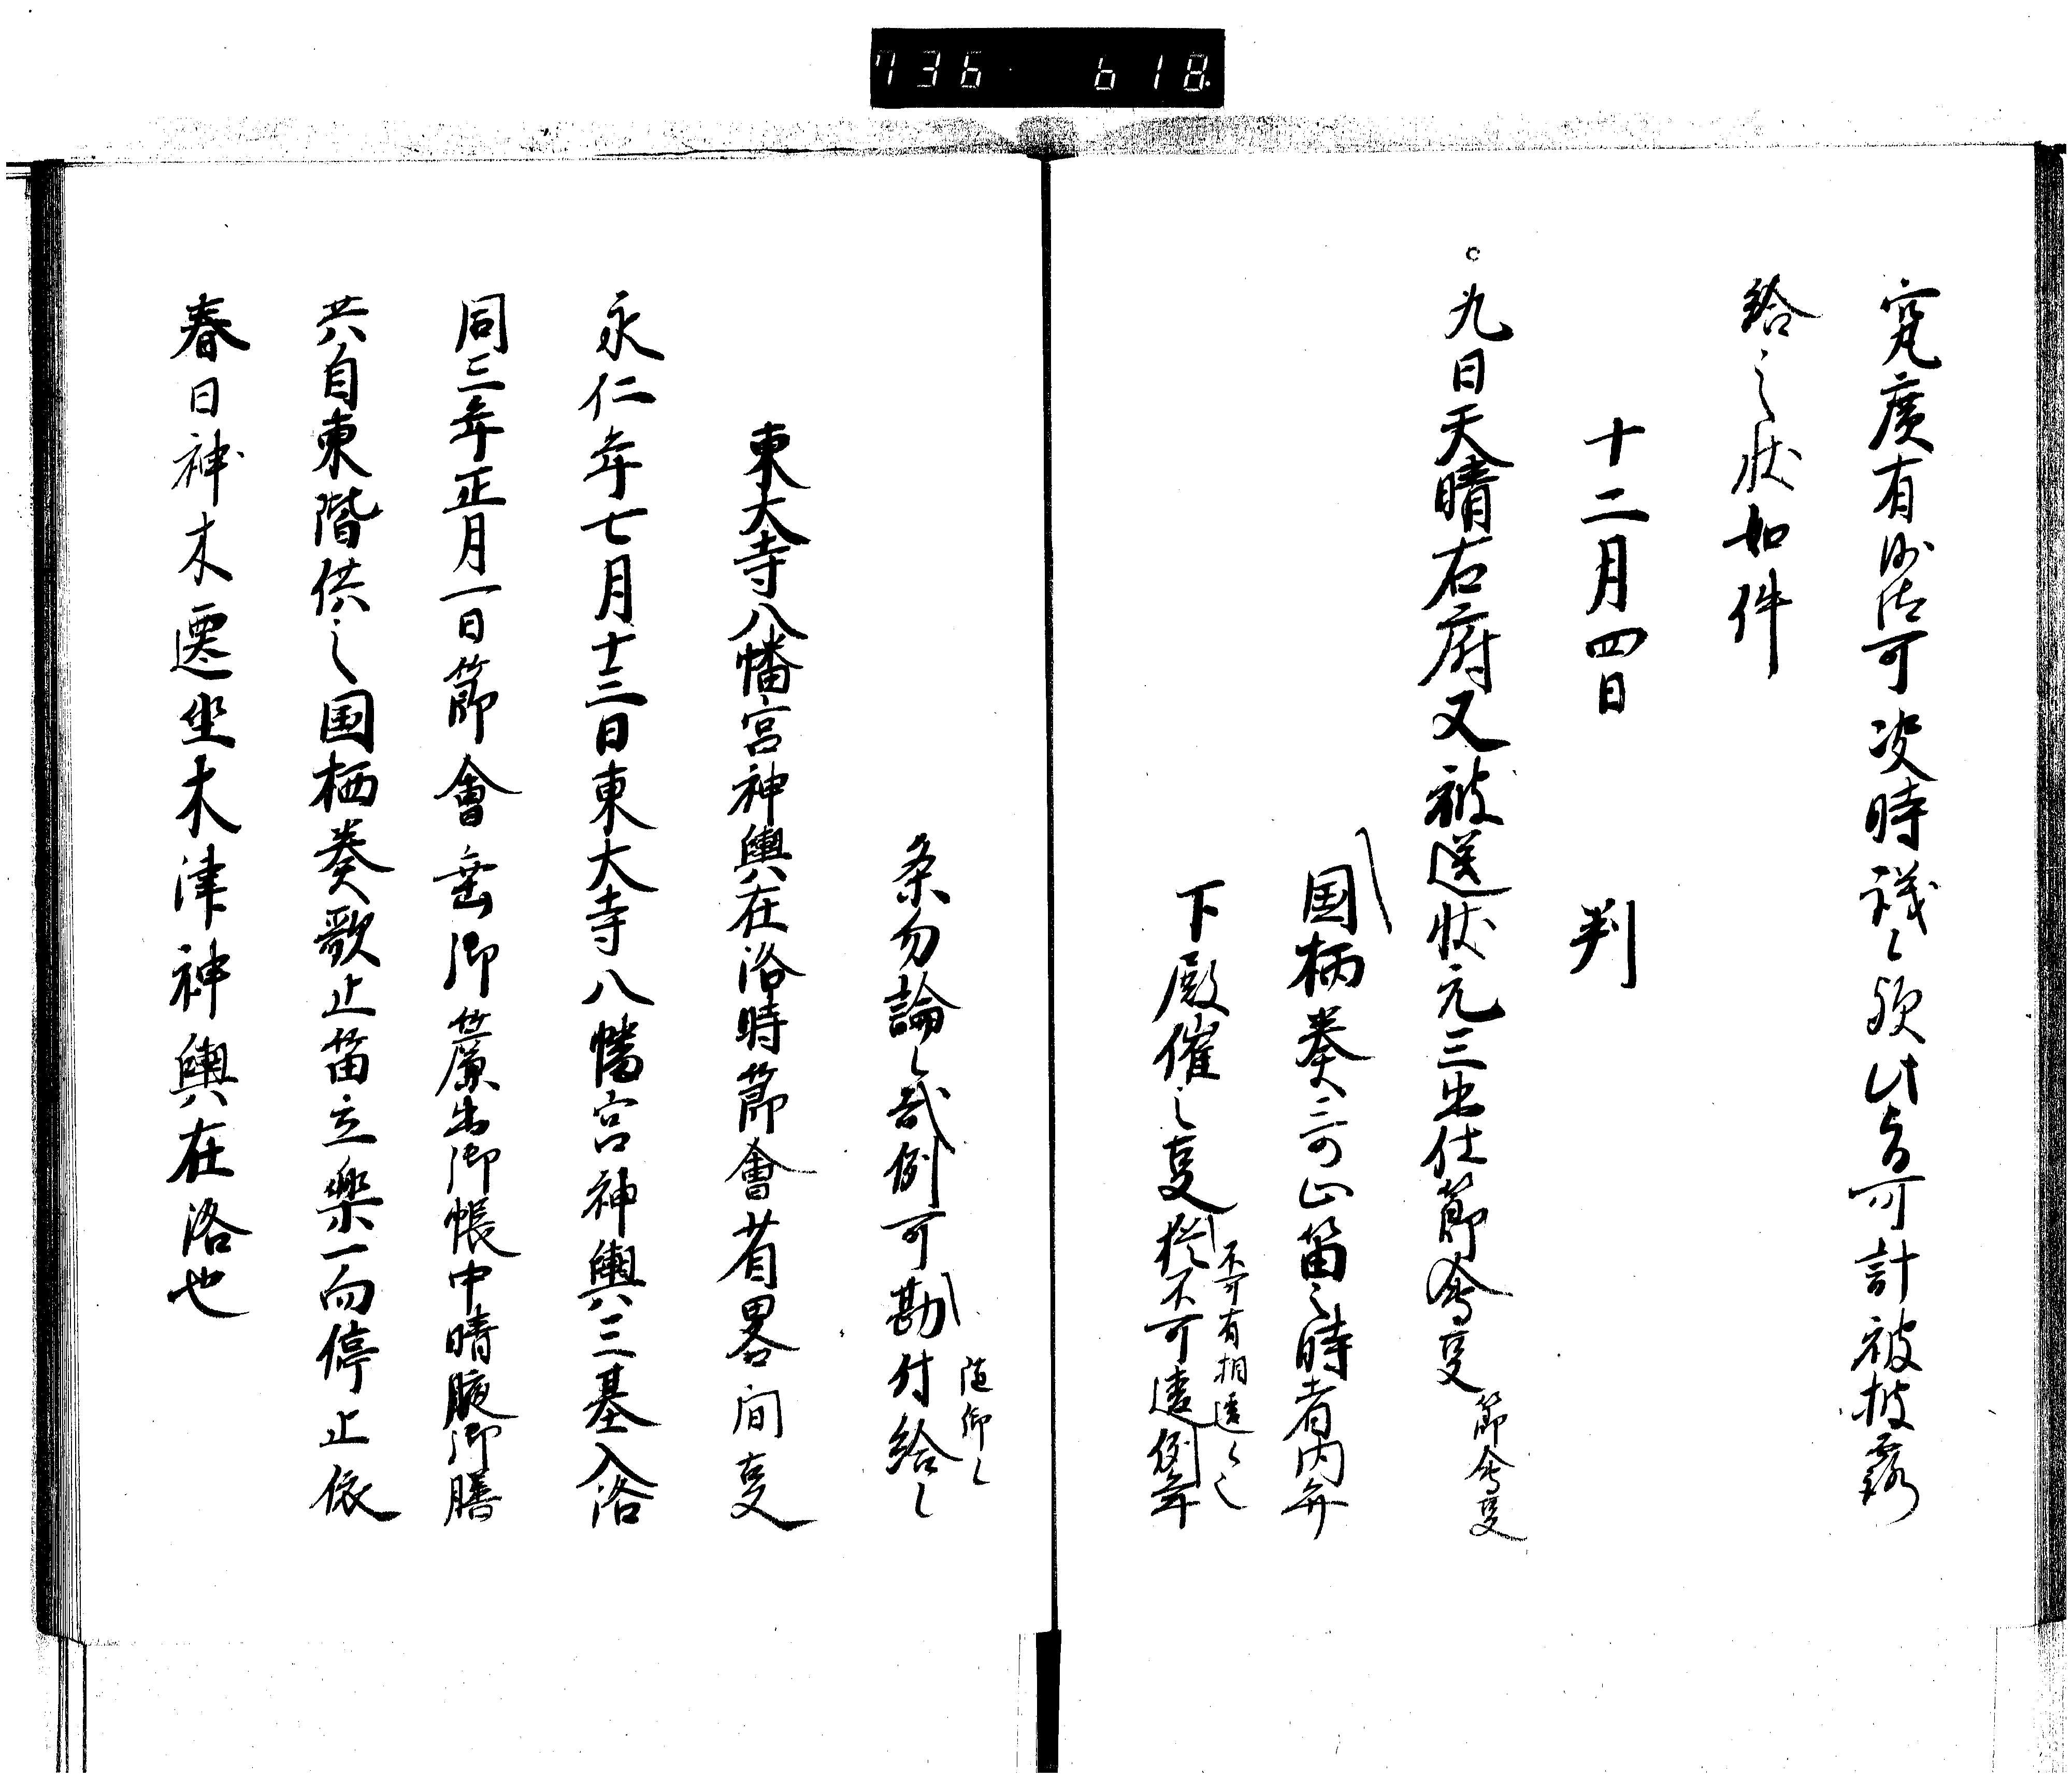 736 618
究廣有沙汰可決時議之次此旨可計被披露
給之状如件
十二月四日 判
○九日天晴右府又被送状元三出仕節會事
節會事
国栖奏可止笛之時者内弁
不可有相違之
下殿催之事猶不可違例年
条勿論之哉例可勘付給之
随仰之
東大寺八幡宮神輿在洛時節會省略間事
永仁年七月十三日東大寺八幡宮神輿三基入洛
同三年正月一日節會垂御簾出御帳中晴腋御膳
共自東階供之国栖奏歌止笛立楽一向停止依
春日神木遷坐木津神輿在洛也